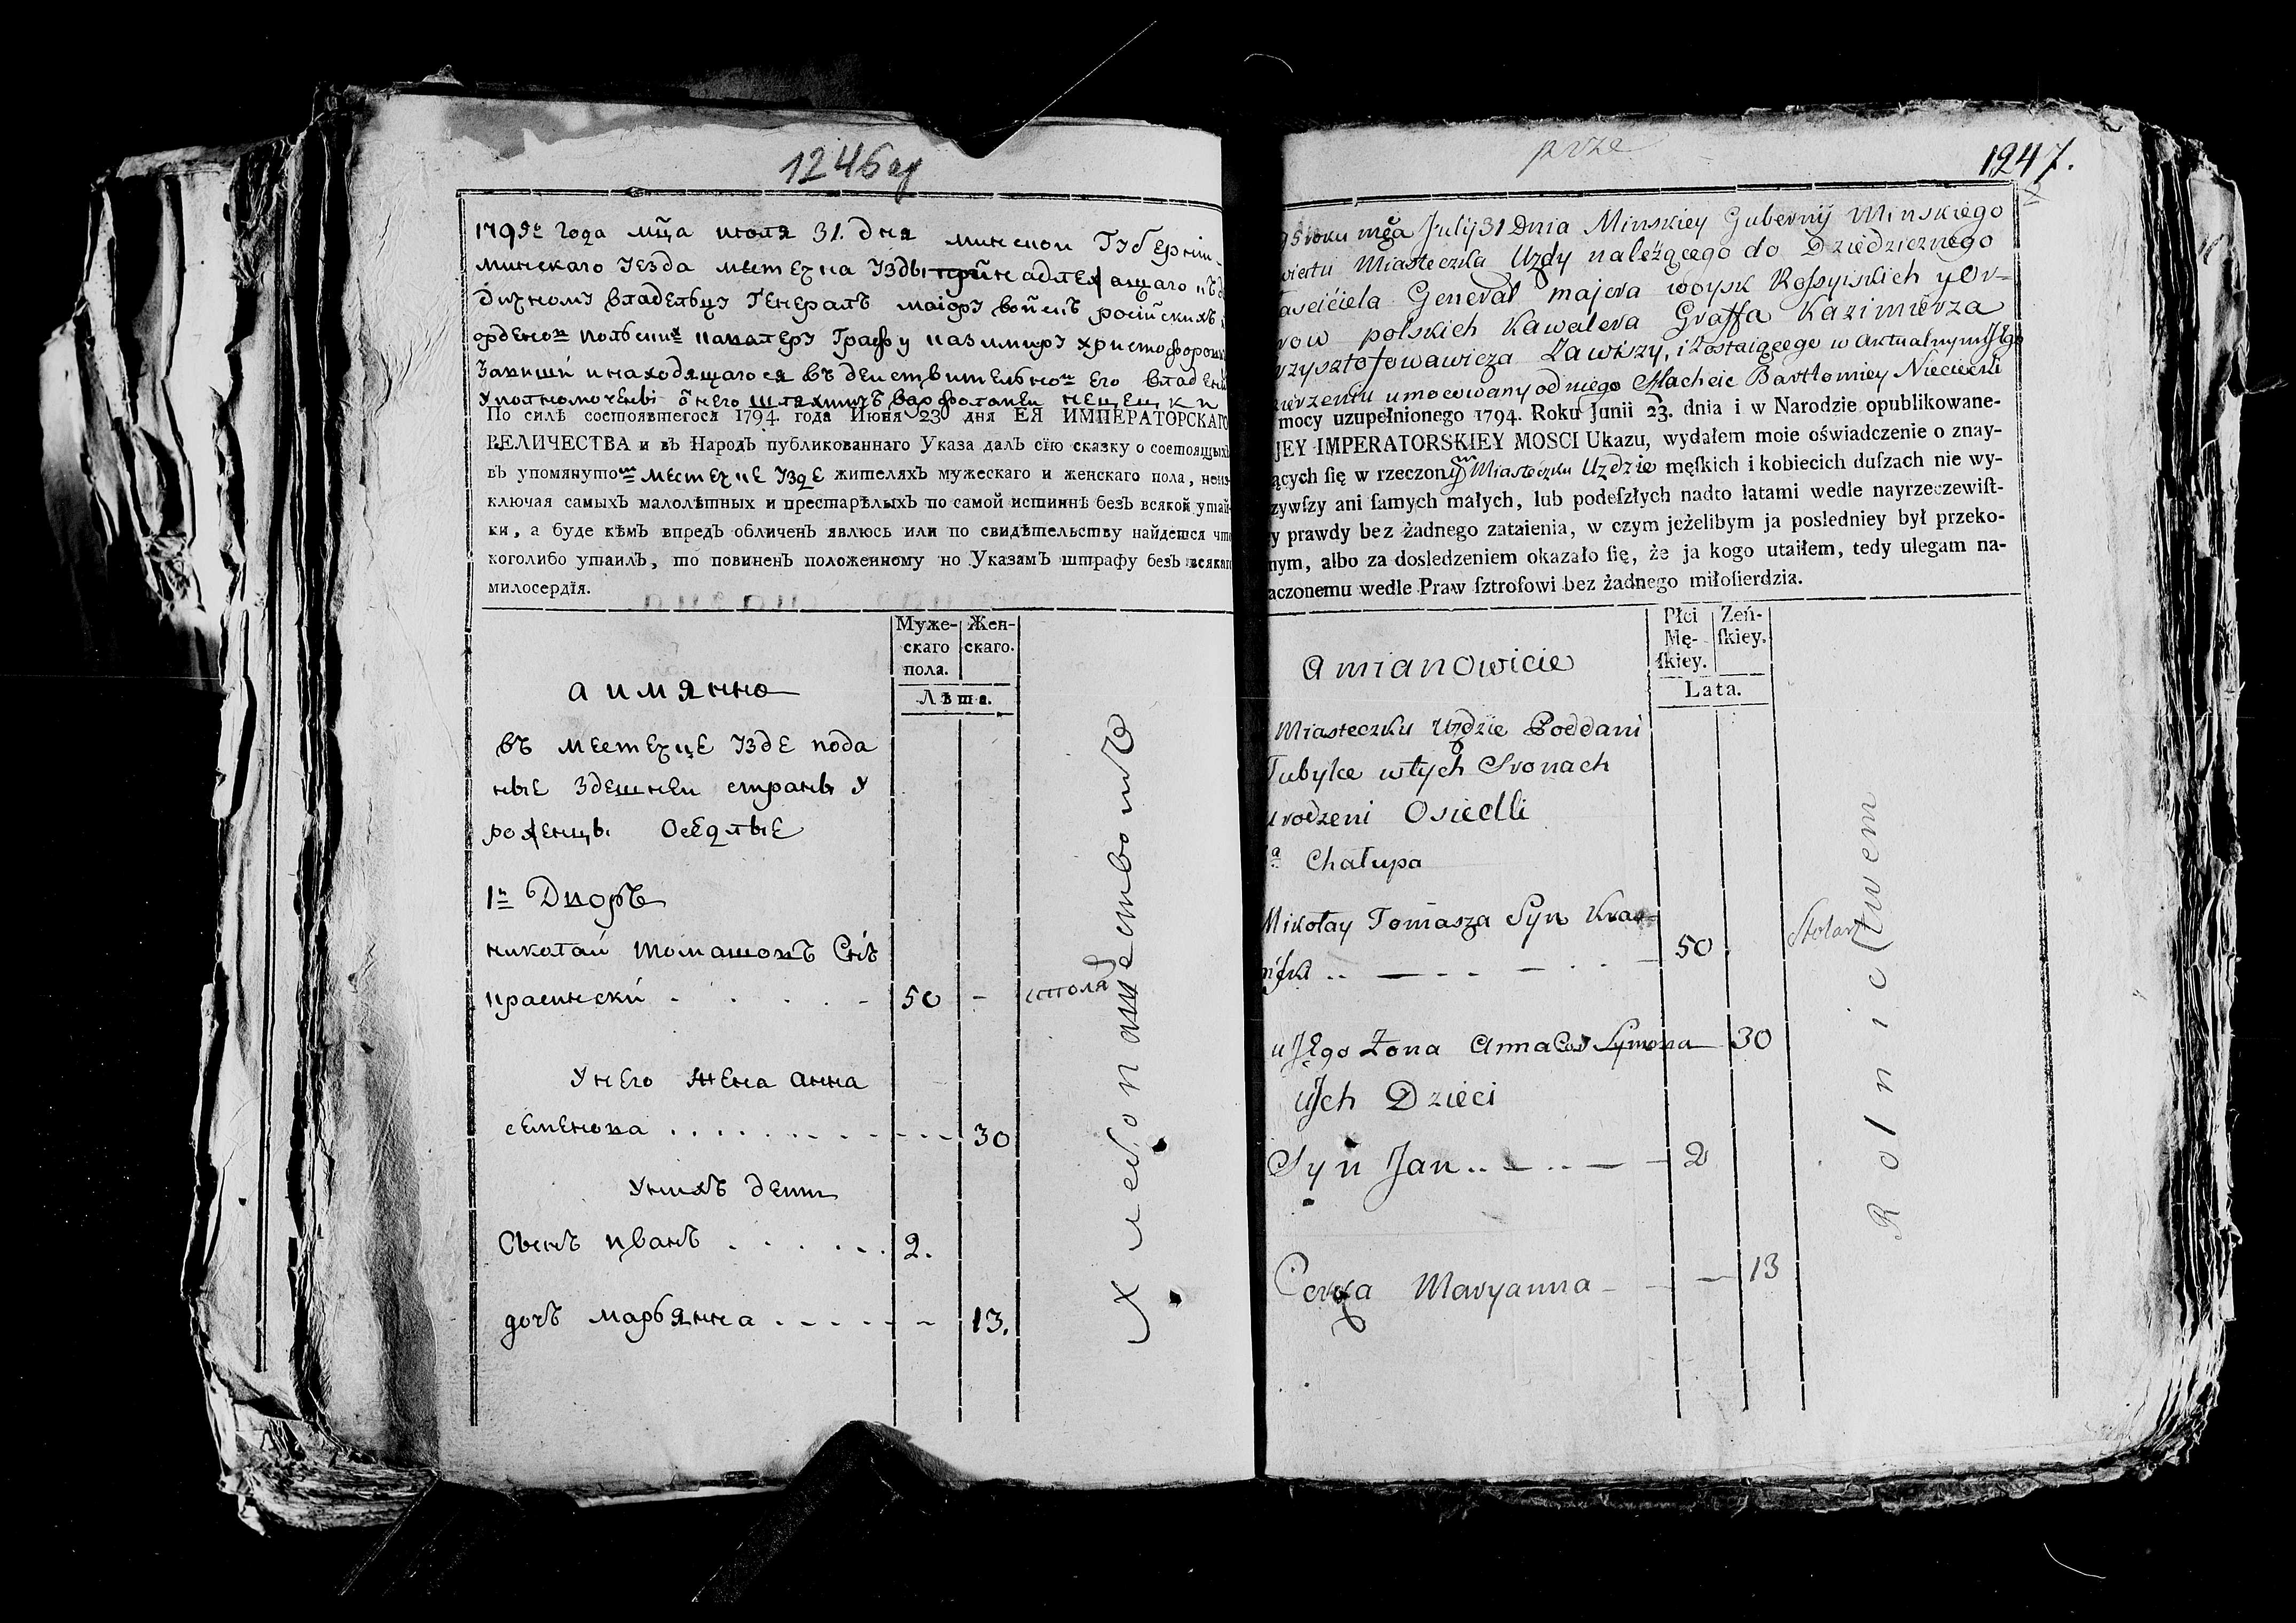 1246
1795го года мца июля 31. дня минской Губерніи
минскаго Уезда местечка Узды принадлежащаго
дичному владельцу Генералъ маіору войскъ росийскихъ
орденовъ польскихъ кавалеру Графу казимиру христофорови
Завиши и находящагося въ действительном его владени
уполномоченні от него шляхтичъ варфоломеи нецецки
По силѣ состоявшегося 1794 года Июня 23 дня ЕЯ ИМПЕРАТОРСКАГО
ВЕЛИЧЕСТВА и въ Народъ публикованнаго Указа далъ сїю сказку о состоящыхъ
въ упомянутом местечке Узде жителяхъ мужескаго и женскаго пола, неиз-
ключая самыхъ малолѣтных и престарѣлыхъ по самой истиннѣ безъ всякой утай-
ки, а буде кѣмъ впредь обличенъ явлюсь или по свидѣтельству найдется что
коголибо утаилъ, то повиненъ положенному по Указамъ штрафу безъ всякаго
милосердїя.
Муже-
скаго
пола.
Жен-
скаго.
Лѣта.
а имянно
въ местечце Узде пода
ные здешнеи страны У
роженцы Оседлые
1й Дворъ
николаи томашовъ Снъ
красински 50 - столяр
У него жена анна
семенова 30
Унихъ дети
Сынъ иванъ 2.
дочъ марьянна 13.
Хлебопашествомъ
prze
1247.
95 roku mca July 31 Dnia Minskiey Gubernij Minskiego
wiertu Miasteczka Uzdy należącego do Dziedzicznego
łaściciela General majora woysk Rossyiskich y Or-
row polskich Kawalera Graffa Kazimierza
rzysztofowawicza Zawiszy, i Zostaiącego w Aktualnym Jego
ierzeniu umocowany od niego Slachcic Bartłomiey Nieciecki
mocy uzupełnionego 1794. Roku Junii 23. dnia i w Narodzie opublikowane-
JEY IMPERATORSKIEY MOSCI Ukazu, wydałem moie oświadczenie o znay-
ących ſię w rzeczonym Miasteczku Uzdzie męſkich i kobiecich duſzach nie wy-
zywſzy ani ſamych małych, lub podeſzłych nadto latami wedle nayrzeczewiſt-
y prawdy bez żadnego zataienia, w czym jeżelibym ja posledniey był przeko-
nym, albo za dosledzeniem okazało ſię, że ja kogo utaiłem, tedy ulegam na-
aczonemu wedle Praw ſztrofowi bez żadnego miłoſierdzia.
Płci
Mę-
ſkiey.
Zeń-
ſkiey.
Lata.
a mianowicie
Miasteczku Uzdzie Poddani
Tubylce w tych Stronach
urodzeni Osiedli
1a Chałupa
Mikołay Tomasza Syn Kra-
siński 50 Stolarz
u Jego Zona Anna Cor Symona 30
u Jch Dzieci
Syn Jan 2
Corka Maryanna 13
Rolnictwem